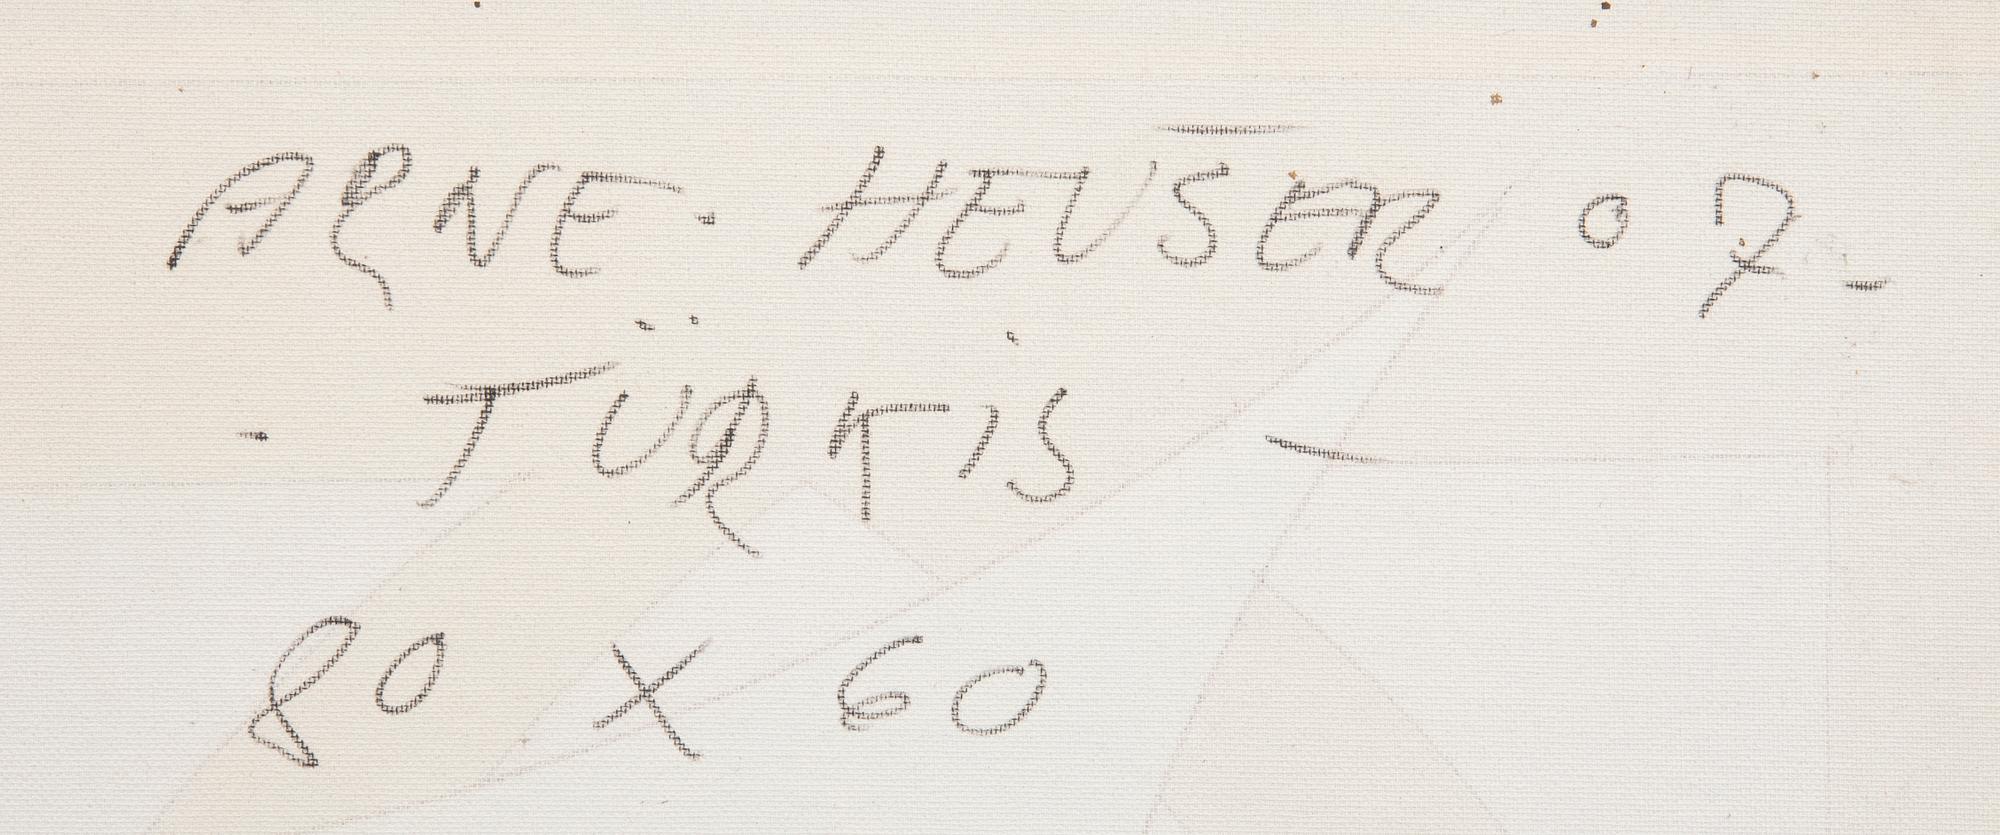 ARNE - HEUSER 07-
- TÜRKIS -
80 X 60